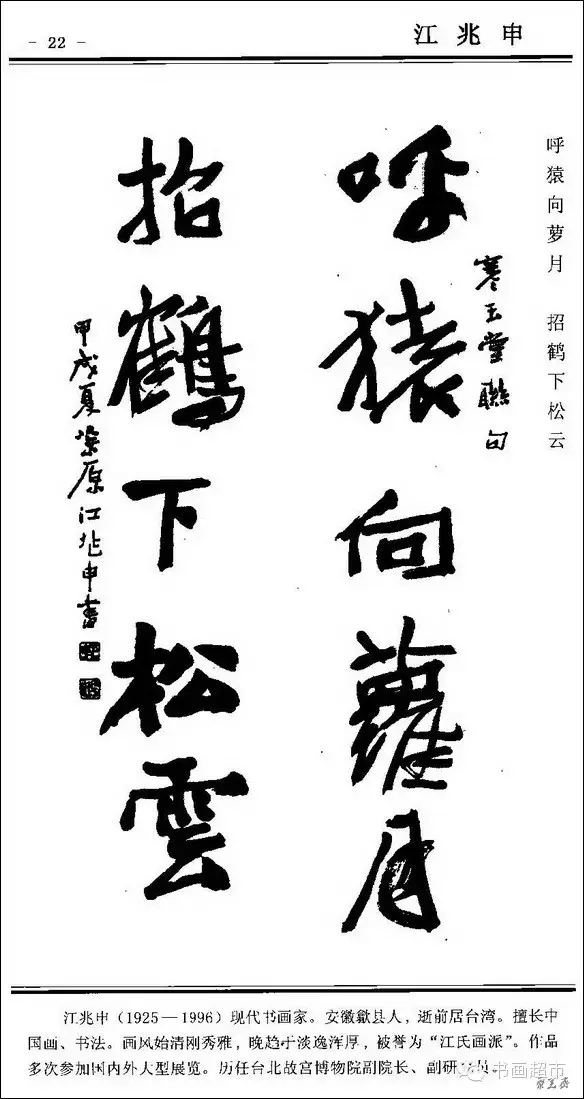 - 22 -
江兆申
呼猿向萝月 招鹤下松云
寒玉堂聯句
呼猿向蘿月
招鶴下松雲
甲戌夏 原江兆申書
江兆申（1925—1996）现代书画家。安徽歙县人，逝前居台湾。擅长中
国画、书法。画风始清刚秀雅，晚趋于淡逸浑厚，被誉为“江氏画派”。作品
多次参加国内外大型展览。历任台北故宫博物院副院长、副研 员。
书画超市